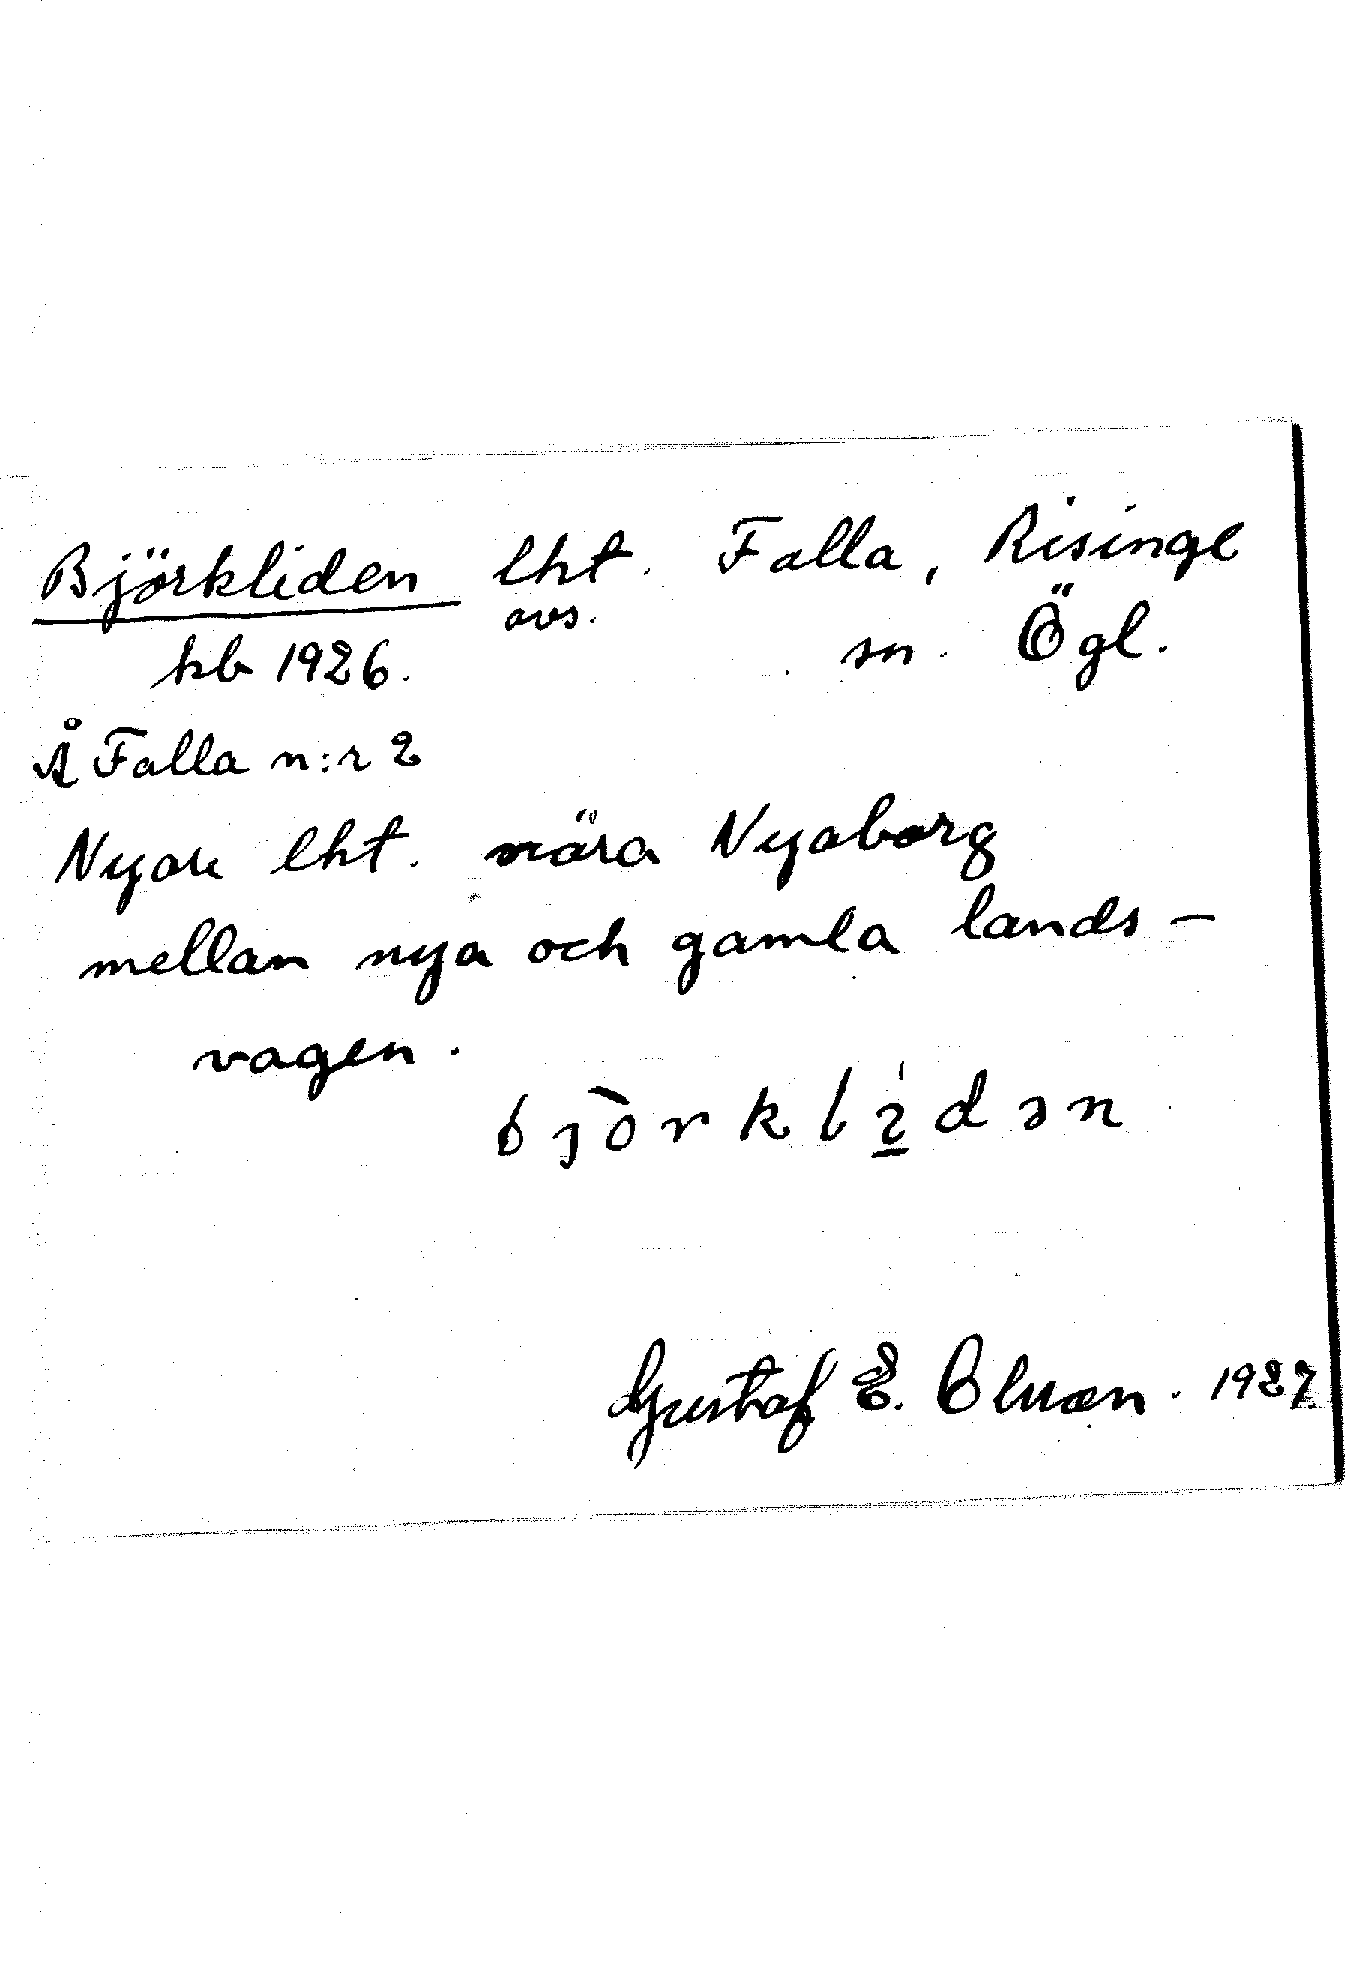 Björkliden lht. Falla, Risinge
avs. sn. Ögl.
kb 1926.
Å Falla n:r 2
Nyare lht. nära Nyaborg
mellan nya och gamla lands-
vagen.
Gustaf E. 1927